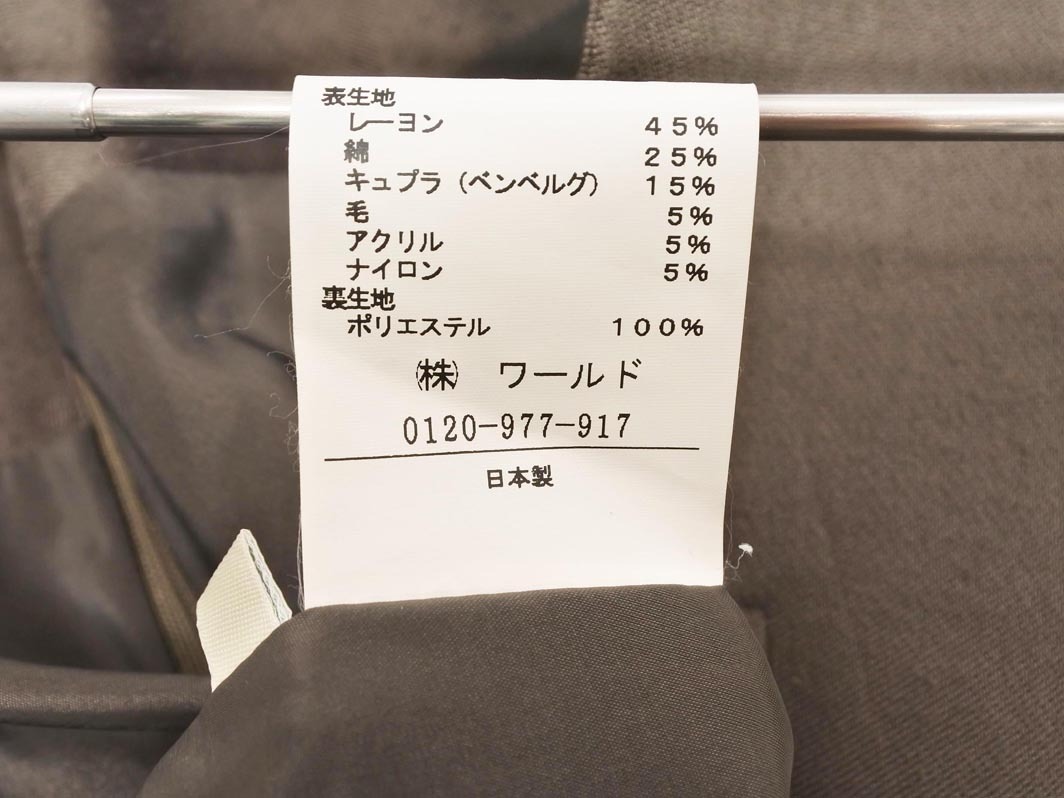 表生地
レーヨン 45%
綿 25%
キュプラ（ベンベルグ） 15%
毛 5%
アクリル 5%
ナイロン 5%
裏生地
ポリエステル 100%
㈱ ワールド
0120-977-917
日本製